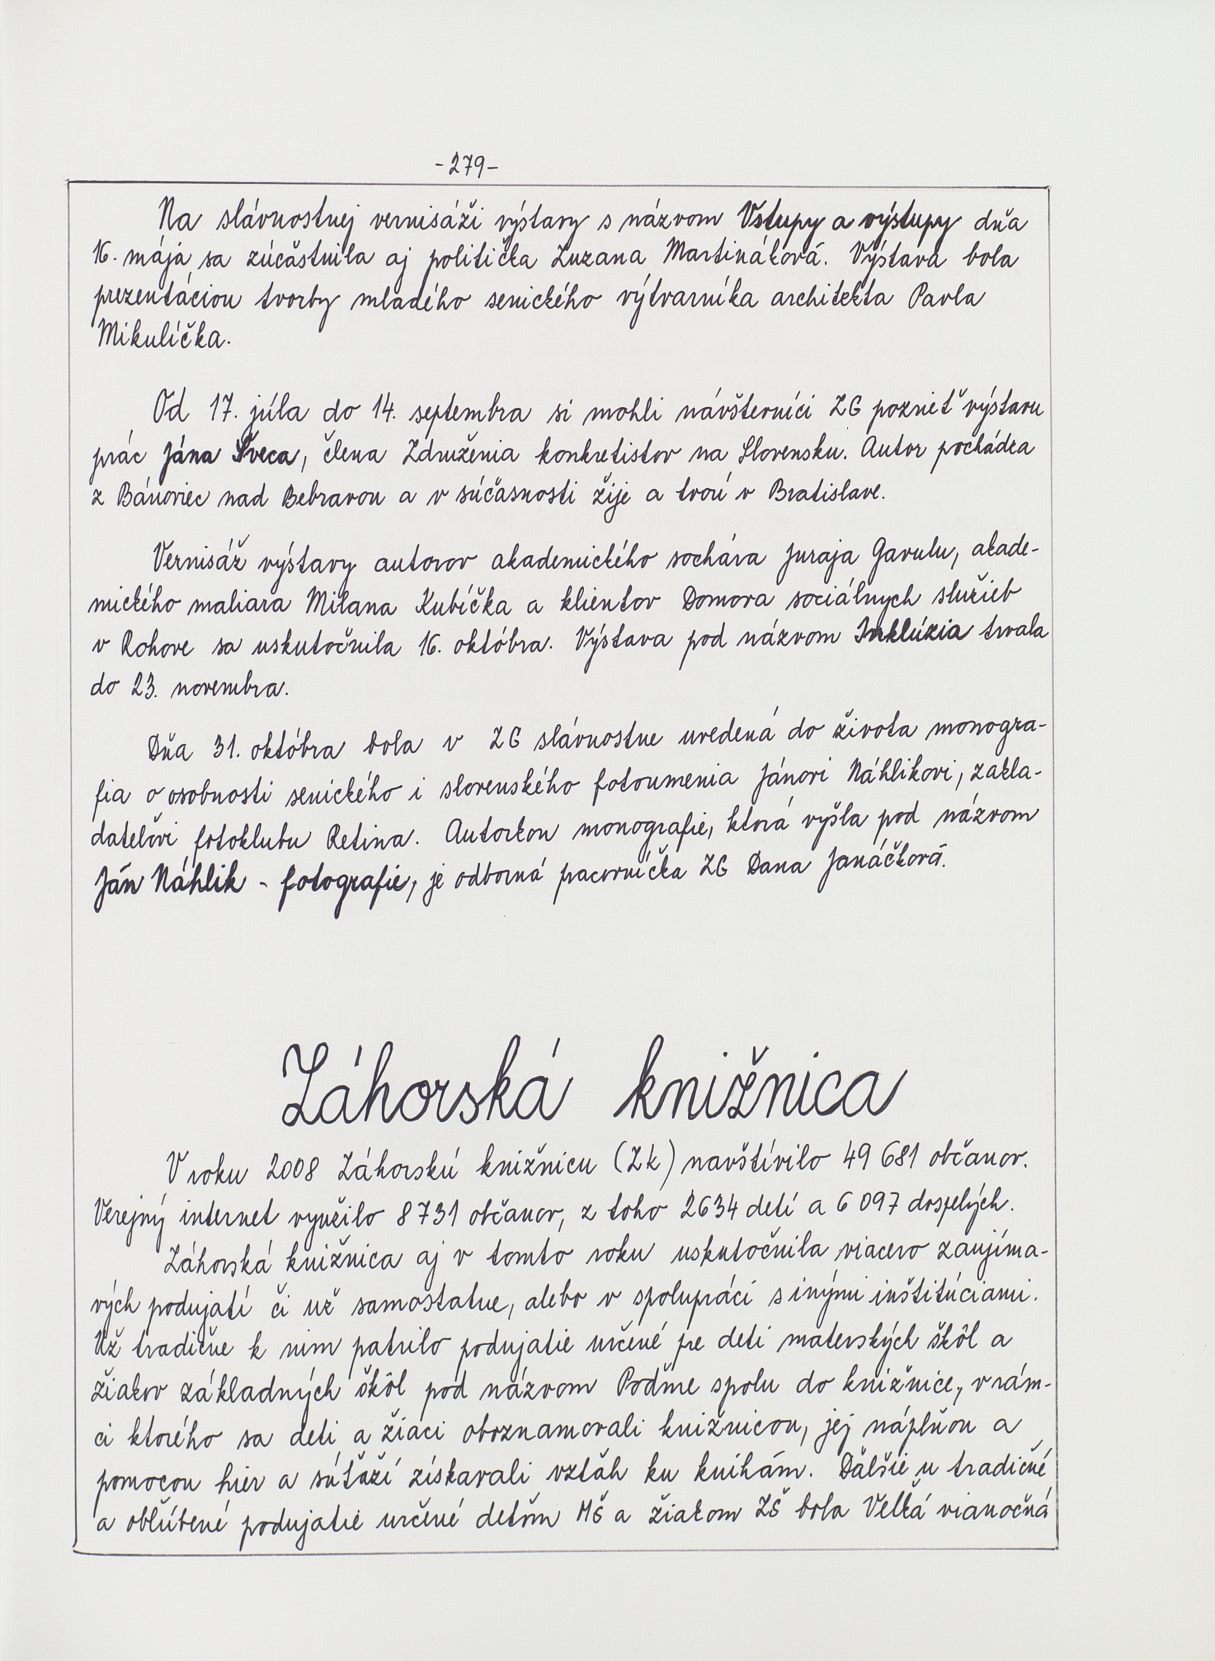 -279-
Na slávnostnej vernisáži výstavy s názvom Vstupy a výstupy dňa
16. mája sa zúčastnila aj politička Zuzana Martináková. Výstava bola
prezentáciou tvorby mladého senického výtvarníka architekta Pavla
Mikulíčka.
Od 17. júla do 14. septembra si mohli návštevníci ZG pozrieť výstavu
prác Jána Šveca, člena Združenia konkretistov na Slovensku. Autor pochádza
z Bánoviec nad Bebravou a v súčasnosti žije a tvorí v Bratislave.
Vernisáž výstavy autorov akademického sochára Juraja Gavulu, akade-
mického maliara Milana Kubíčka a klientov Domova sociálnych služieb
v Rohove sa uskutočnila 16. októbra. Výstava pod názvom Inklúzia trvala
do 23. novembra.
Dňa 31. októbra bola v ZG slávnostne uvedená do života monogra-
fia o osobnosti senického i slovenského fotoumenia Jánovi Náhlikovi, zakla-
dateľovi fotoklubu Retina. Autorkou monografie, ktorá vyšla pod názvom
Ján Náhlik - fotografie, je odborná pracovníčka ZG Dana Janáčková.
Záhorská knižnica
V roku 2008 Záhorskú knižnicu (ZK) navštívilo 49 681 občanov.
Verejný internet využilo 8 731 občanov, z toho 2634 detí a 6 097 dospelých.
Záhorská knižnica aj v tomto roku uskutočnila viacero zaujíma-
vých podujatí či už samostatne, alebo v spolupráci s inými inštitúciami.
Už tradične k nim patrilo podujatie určené pre deti materských škôl a
žiakov základných škôl pod názvom Poďme spolu do knižnice, v rám-
ci ktorého sa deti a žiaci oboznamovali knižnicou, jej náplňou a
pomocou hier a súťaží získavali vzťah ku knihám. Ďalšie u tradičné
a obľúbené podujatie určené deťom MŠ a žiakom ZŠ bola Veľká vianočná